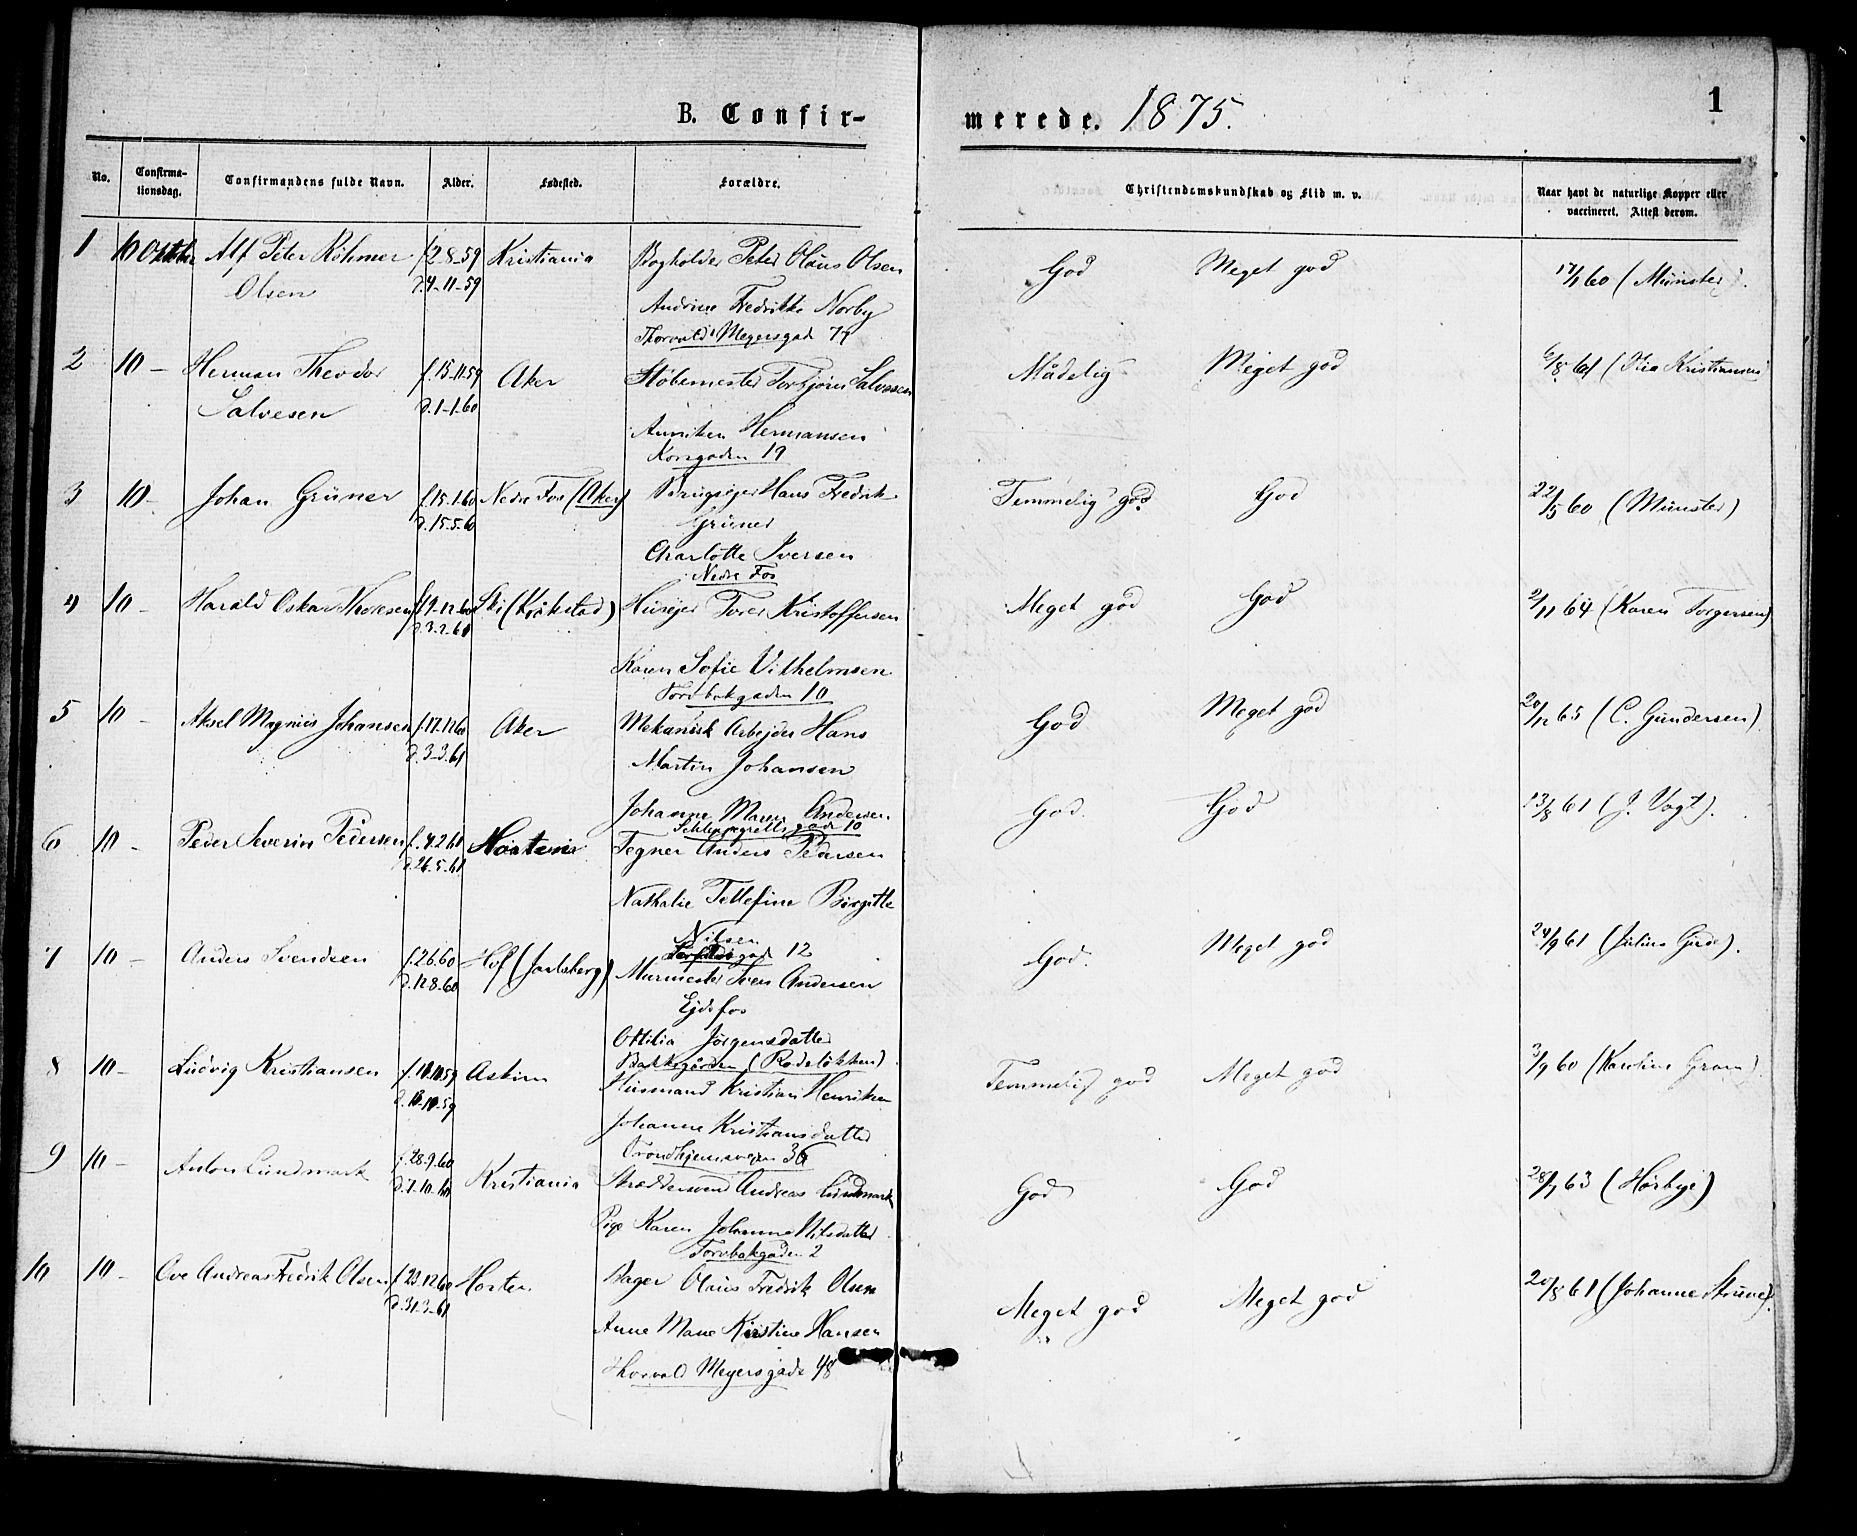 B. Confir-
merede. 1875.
1
No.
Confirma-
tionsdag.
Confirmandens fulde Navn.
Alder.
Fødested.
Forældre.
Christendomskundskab og Flid m. v.
Naar havt de naturlige Kopper eller
vaccineret. Attest derom.
1 10 Oktbr Alf Peter Röhmer f 2-8-59 Kristiania Bogholder Peter Olaus Olsen God Meget god 17/1 60 (Münster).
Olsen d. 4-11-59
Andrine Fredrikke Norby
Thorvald Meyersgad 77
2 10 – Herman Theodor f. 15-11-59 Aker Støbemester Torbjørn Salvesen Mådelig Meget god 6/8 61 (Mia Kristiansen)
Salvesen d. 1-1-60
Anniken Hermansen
Korsgaden 19
3 10 – Johan Grüner f. 15.1.60 Nedre Fos (Aker) Brugsejer Hans Fredrik Temmelig god God 22/5 60 (Münster)
d. 15.5.60 Grüner
Charlotte Iversen
Nedre Fos
4 10 – Harald Oskar Thoresen f. 19-12-60 Ski (Kråkstad) Husejer Tover Kristoffersen Meget god God 2/11 64 (Karen Torgersen)
d. 3-2-61
Karen Sofie Vilhelmsen
Torvbakgaden 10
5 10 – Aksel Magnus Johansen f. 17.12.60 Aker Mekanisk Arbejder Hans God Meget god 20/12 65 (C. Gundersen).
d. 3-3.61 Martin Johansen
Johanne Marie Andersen
Schleppegrellsgade 10
6 10 – Peder Severin Pedersen f. 4.2.61 Tegner Anders Pedersen God. God 13/8 61 (J. Vogt).
d. 26.5.61
Nathalie Tellefine Birgitte
Nilsen
12
7 10 – Anders Svendsen f. 2.6.60 Hof (Jarlsberg) Murmester Sven Andersen God. Meget god 24/9 61 (Julius Gude).
d. 12.8.60 Ejdsfos
Ottilia Jørgensdatter
Bakkegården (Rodeløkken).
8 10 – Ludvig Kristiansen Askim Husmand Kristian Henriksen Temmelig god Meget god 3/9 60 (Karoline Gram)
Johanne Kristiansdatter
Trondhjemsvejen 36
9 10 – Anton Lundmark f. 28.9.60 Kristiania Skræddersvend Andreas Lundmark God God 28/1 63 (Hørbye)
d. 7.10.60
Pige Karen Johanne Nilsdatter
Torvbakgaden 2
10 10 – Ove Andreas Fredrik Olsen f. 23.12.60 Horten Bager Olaus Fredrik Olsen Meget god Meget god 20/8 61 (Johanne Struve).
d. 31.3.61
Anne Marie Kristine Hansen
Thorvald Meyersgade 48